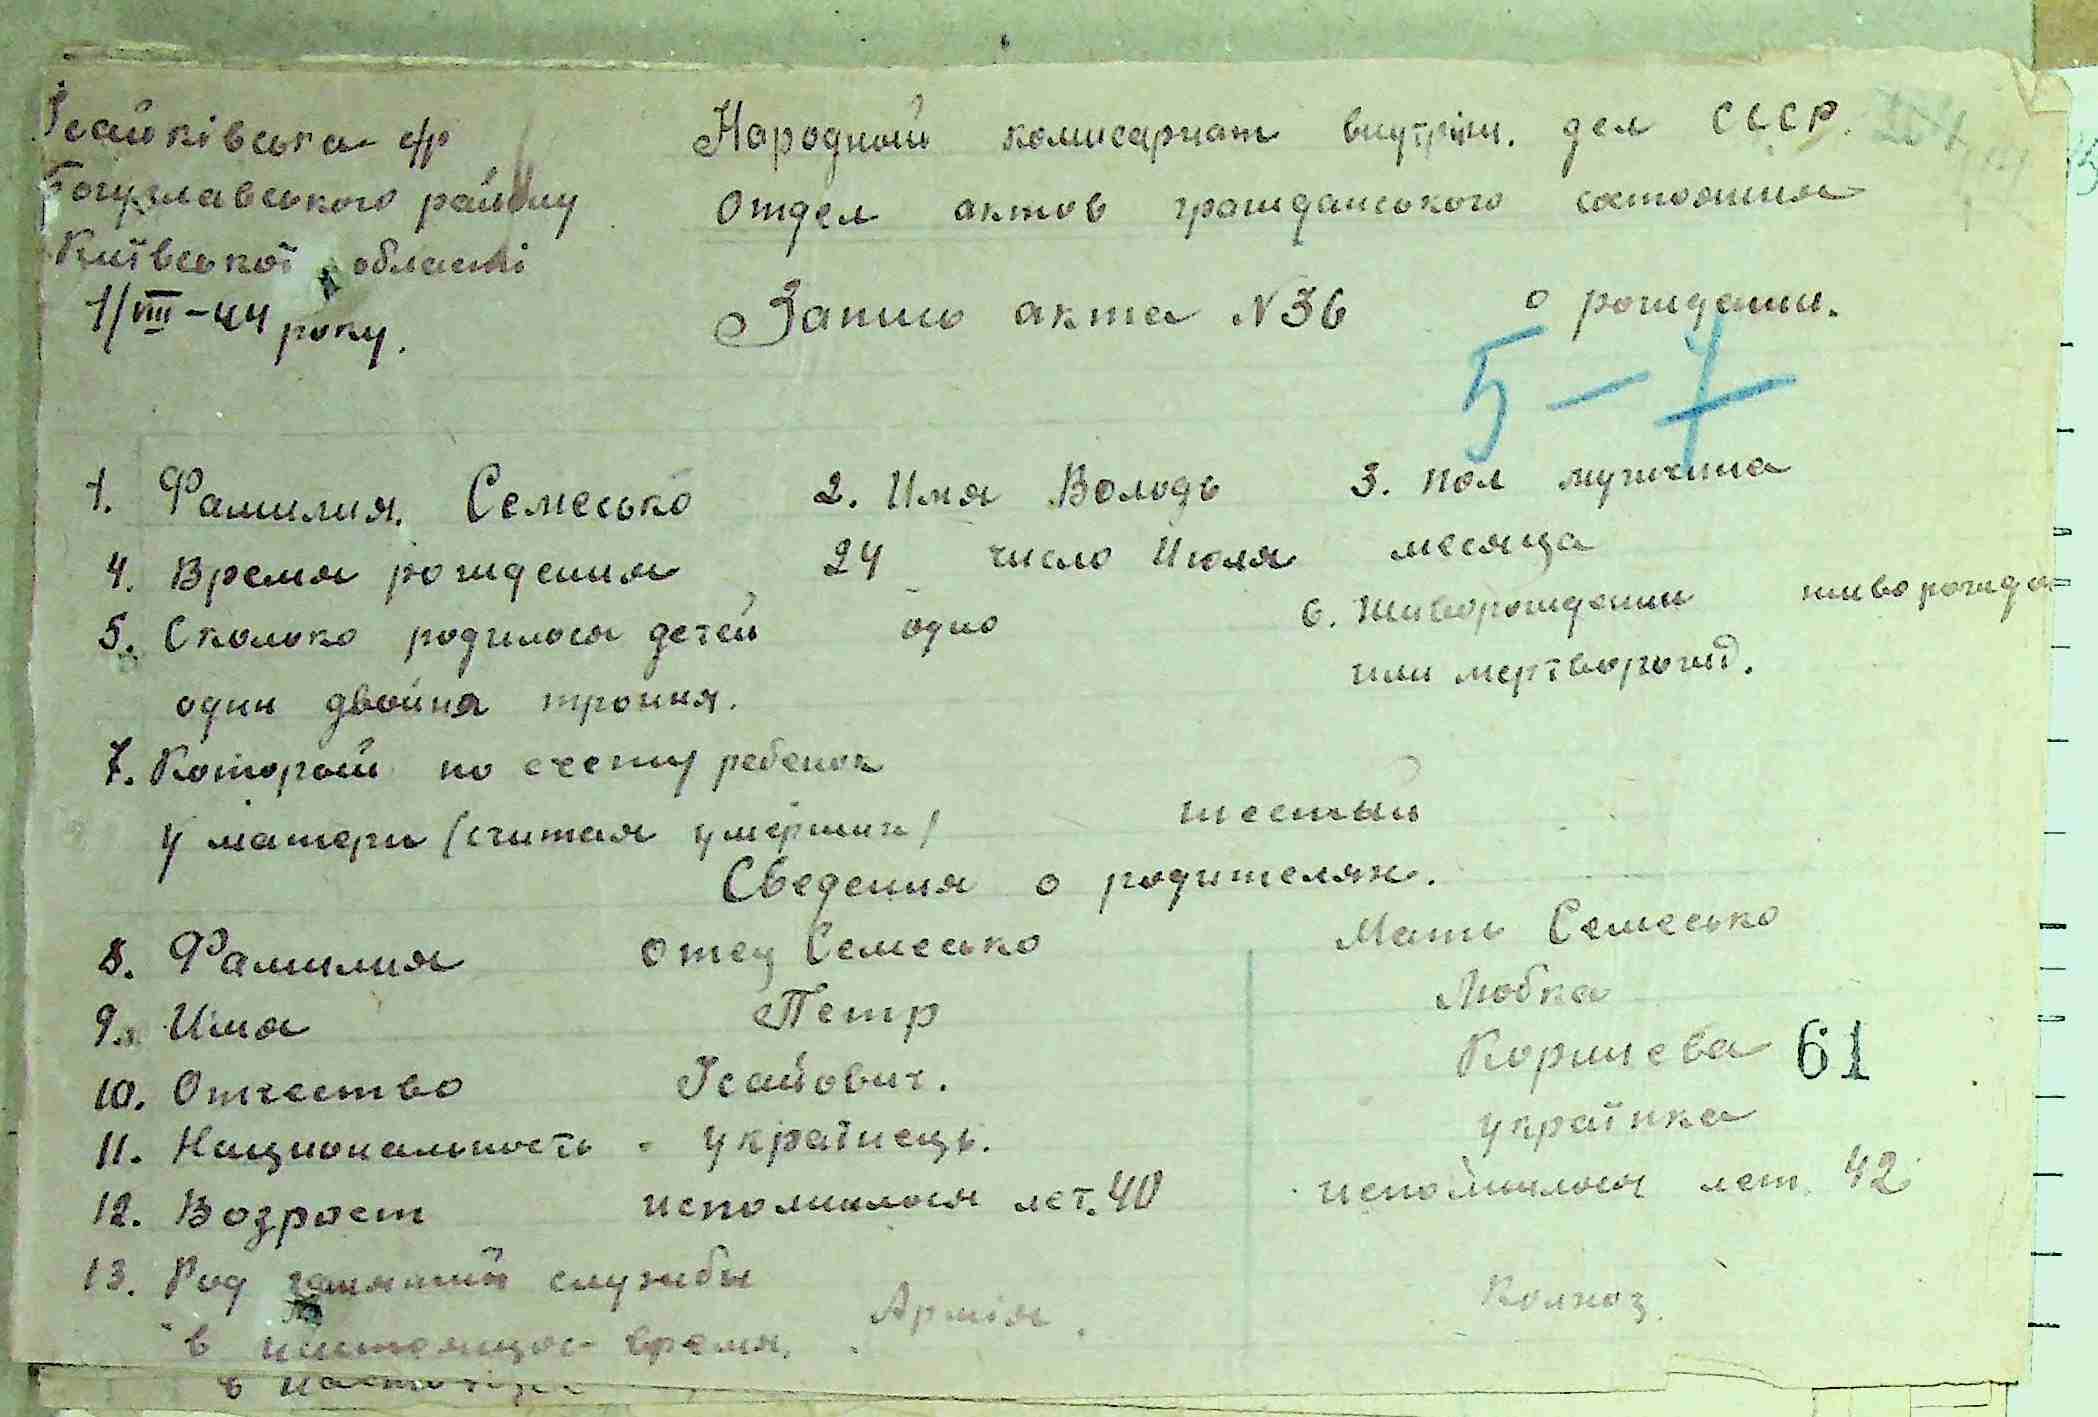 Ісайківська с/р
Богуславського району
Київської області
1/VIII-44 року.
Народний комисариат внутрін. дел СССР.
Отдел актов гражданського состояния
Запись акта N 36 о рождении.
5-7
1. Фамилия. Семесько 2. Имя Володь 3. пол мужчина
4. Время рождения 24 число Июля месяца
5. Сколько родилося детей одно 6. Живорождении живорожда
один двойня тройня. или мертворожд.
7. Который по счету ребенок
у матери (считая умерших) шестый
Сведения о родителях.
8. Фамилия отец Семесько Мать Семесько
9. Имя Петр Любка
10. Отчество Ісайович. Корнієва 61
11. Национальность - українець. українка
12. Возраст исполнилося лет. 40 исполнилося лет. 42
13. Род занятий службы
в настоящое время. Армія. Колхоз.
в